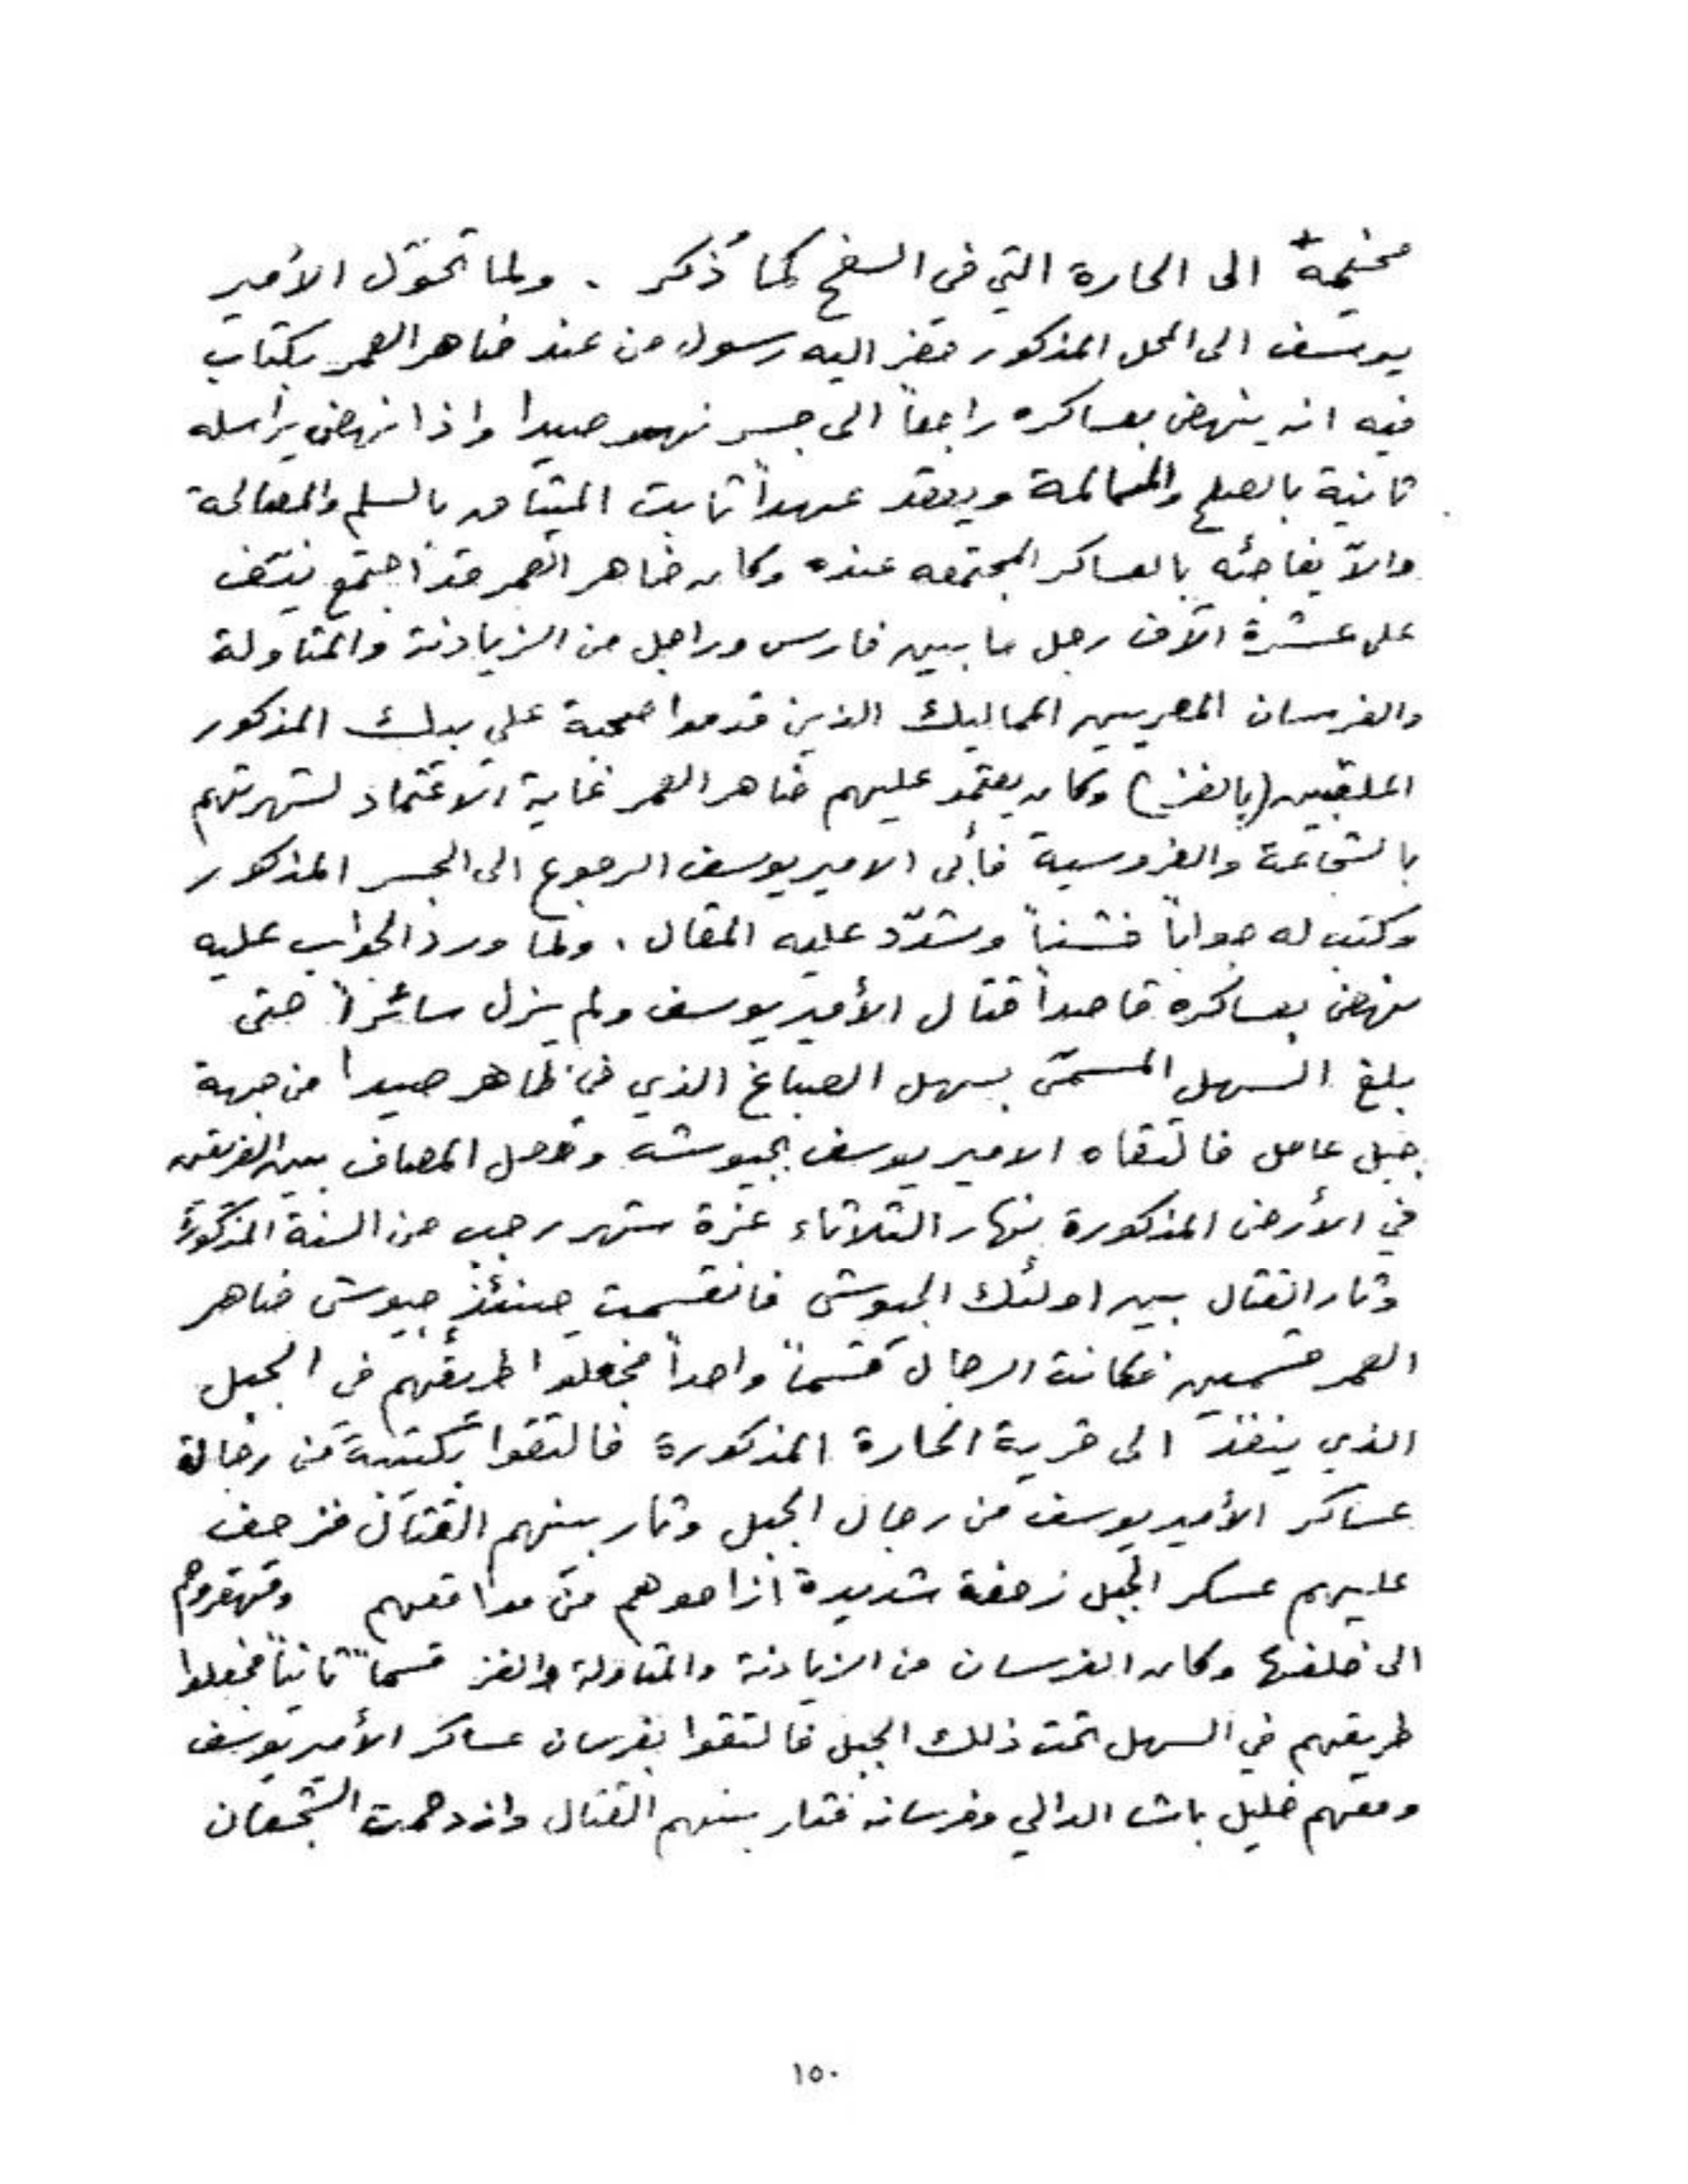 مخيمة الى الحارة التي في السفح كما ذُكر . ولما تحوّل الأمير
يوسف الى المحل المذكور حضر اليه رسول من عند ضاهر العمر بكتاب
فيه انه ينهض بعساكره راجعاً الى جسر نهر صيدا واذا نهض يراسله
ثانية بالصلح والمسالمة ويعقد عهداً ثابت الميثاق بالسلم والمصالحة
والاّ يفاجئه بالعساكر المجتمعه عنده وكان ضاهر العمر قد اجتمع نيّف
على عشرة آلاف رجل ما بين فارس وراجل من الزيادنة والمتاولة
والفرسان المصريين المماليك الذين قدموا صحبة علي بيك المذكور
الملقبين (بالغز) وكان يعتمد عليهم ضاهر العمر غاية الاعتماد لشهرتهم
بالشجاعة والفروسية فأبى الامير يوسف الرجوع الى الجسر المذكور
وكتب له جواباً خشناً وشدّد عليه المقال . ولما ورد الجواب عليه
نهض بعساكره قاصداً قتال الأمير يوسف ولم يزل سائراً حتى
بلغ السهل المسمّى بسهل الصباغ الذي في ظاهر صيدا من جهة
جبل عامل فالتقاه الامير يوسف بجيوشه وحصل المصاف بين الفريقين
في الأرض المذكورة نهار الثلاثاء غرة شهر رجب من السنة المذكورة
وثار القتال بين اولئك الجيوش فانقسمت حينئذٍ جيوش ضاهر
العمر قسمين فكانت الرجال قسماً واحداً فجعلوا طريقهم في الجبل
الذي ينفذ الى قرية الحارة المذكورة فالتقوا بكتيبة من رجالة
عساكر الأمير يوسف من رجال الجبل وثار بينهم القتال فزحف
عليهم عسكر الجبل زحفة شديدة أزاحوهم من مواقعهم وقهقروهم
الى خلفها وكان الفرسان من الزيادنة والمتاولة والغز قسماً ثانياً فجعلوا
طريقهم في السهل تحت ذلك الجبل فالتقوا بفرسان عساكر الأمير يوسف
ومعهم خليل باشا الدالي وفرسانه فثار بينهم القتال وازدحمت الشجعان
١٥٠